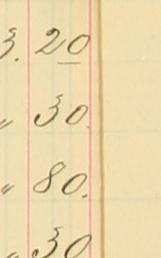 3. 20
" 30.
" 80.
" 30